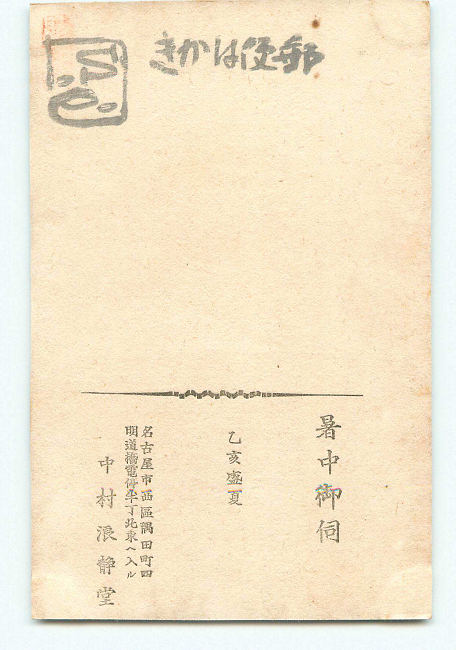 きかは便郵
暑中御伺
乙亥盛夏
名古屋市西區隅田町四
明道橋電停半丁北東へ入ル
中村浪静堂